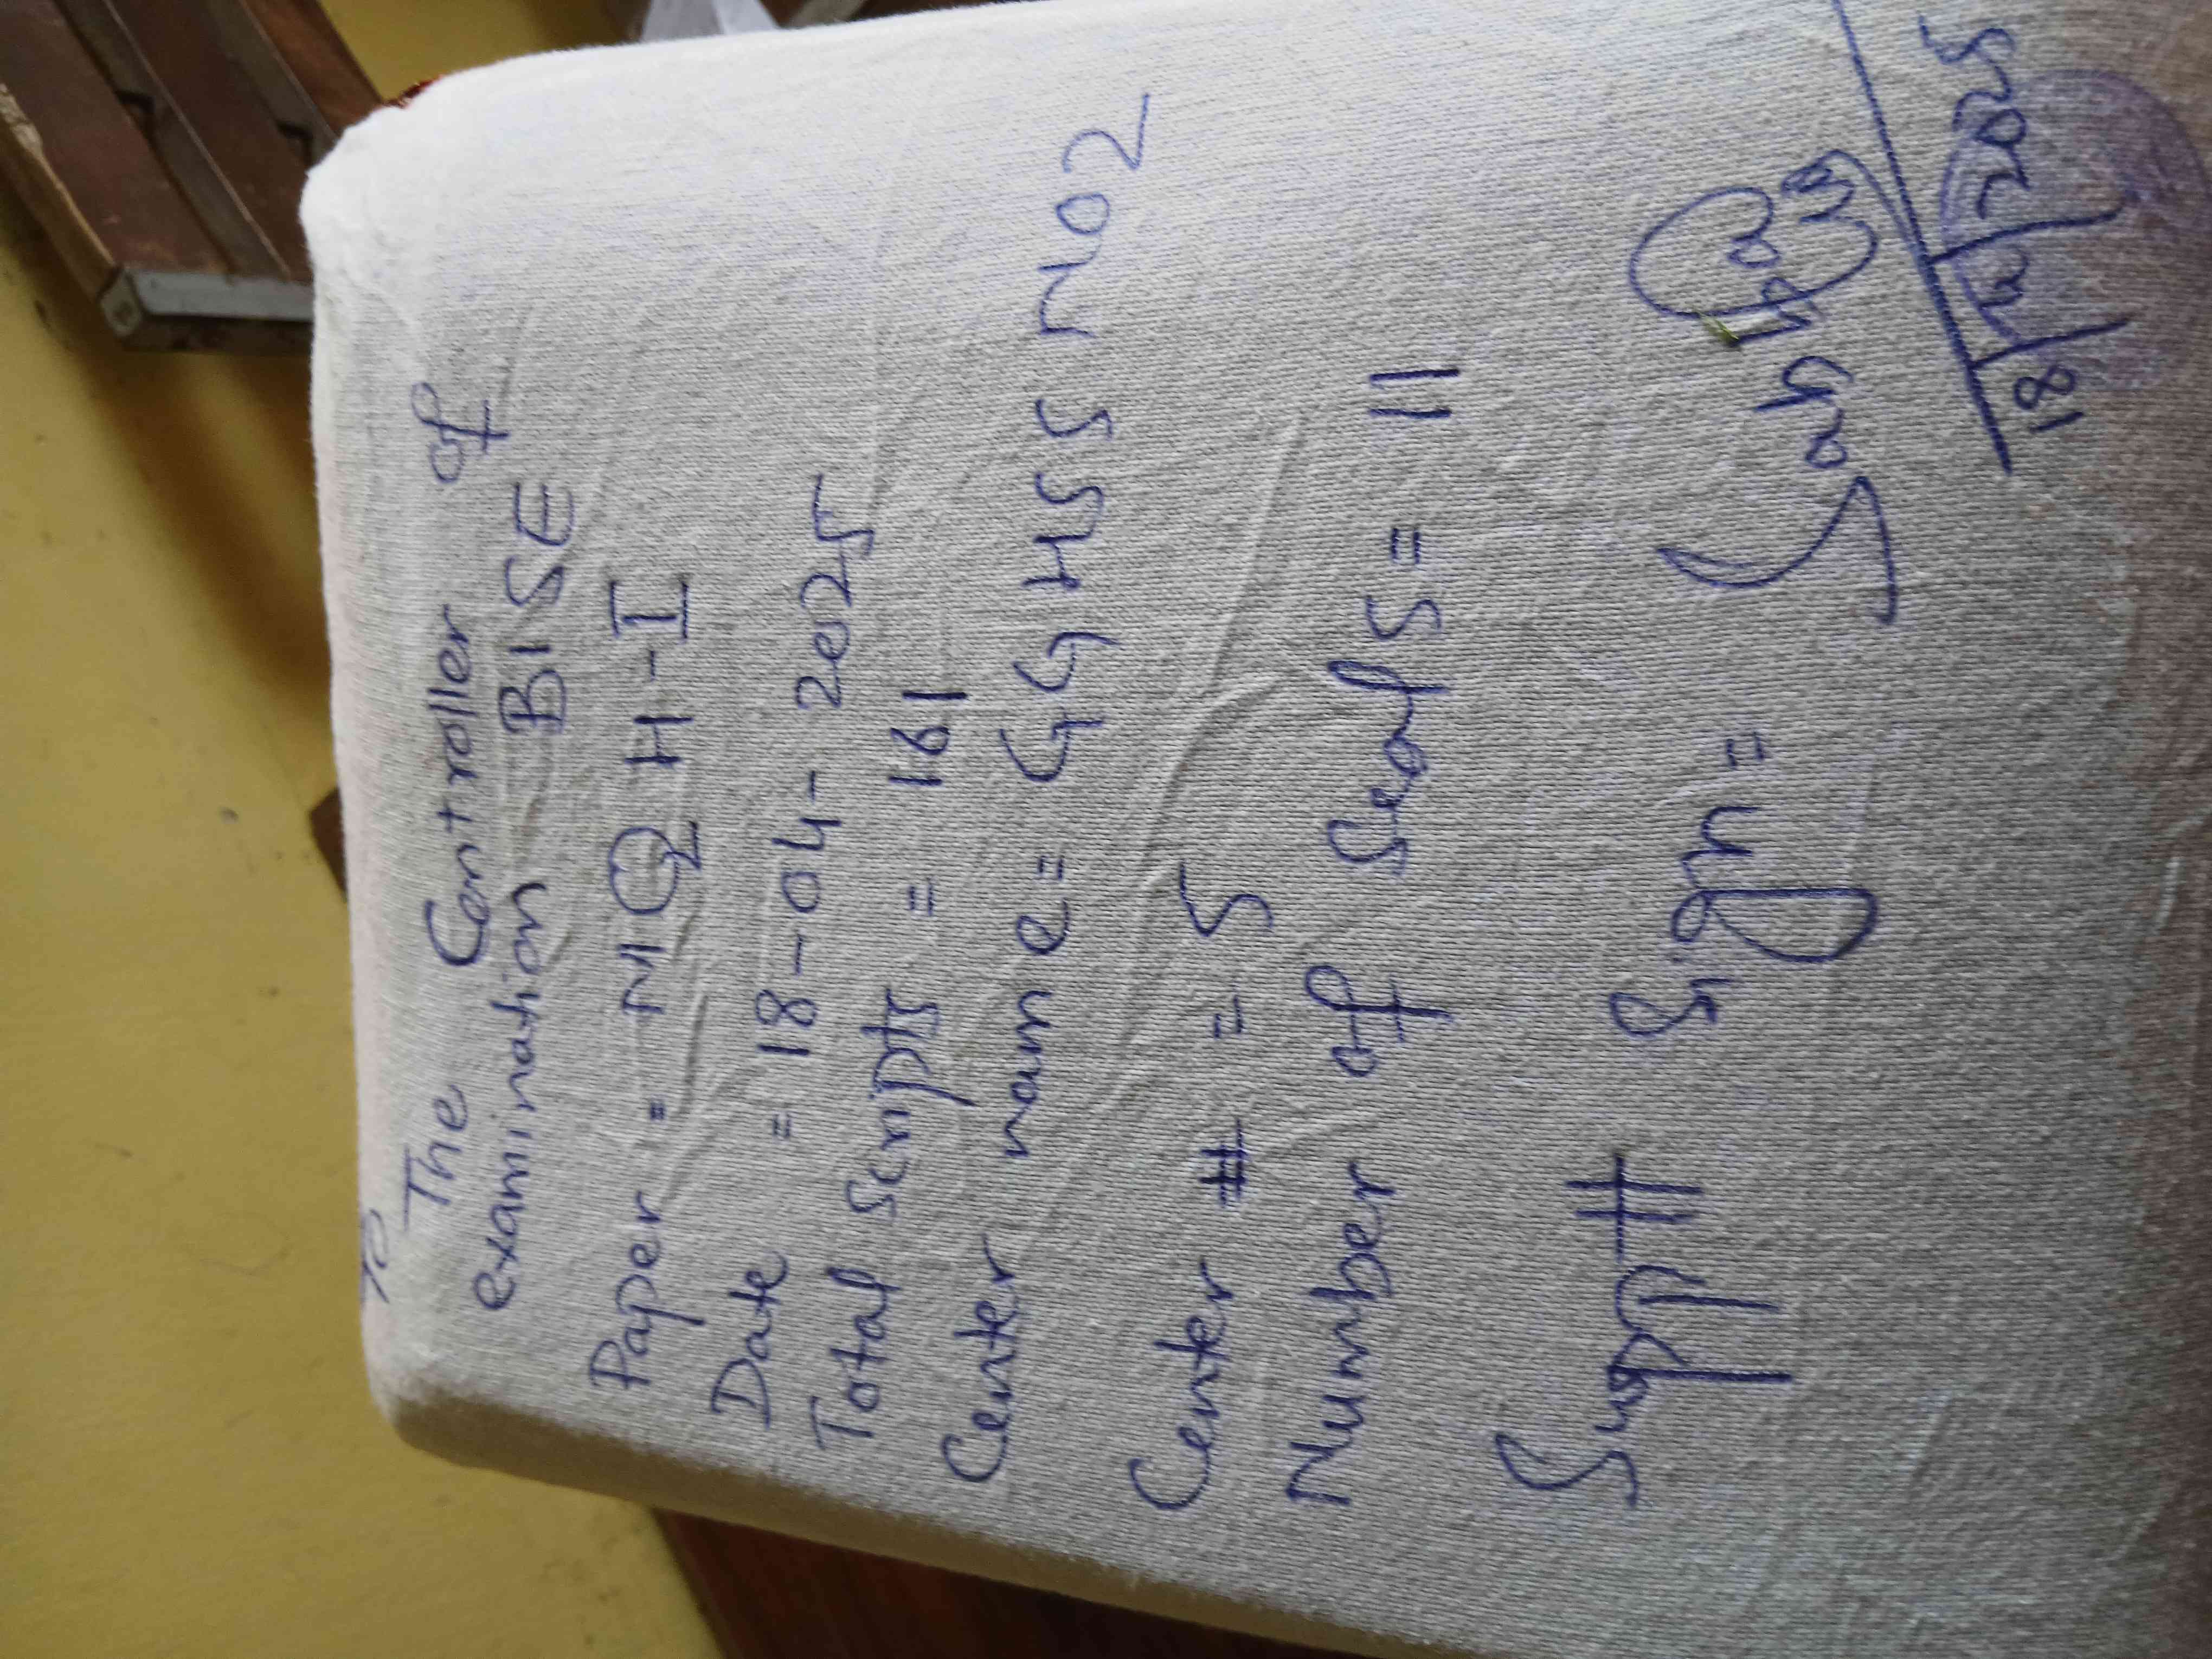 To
The Controller of
examination BISE
Paper = MQ H-I
Date = 18-04-2025
Total Scripts = 161
Center name = GGHSS NO2
Center # = 5
Number of Seals = 11
Suptt Sign =
18/4/2025